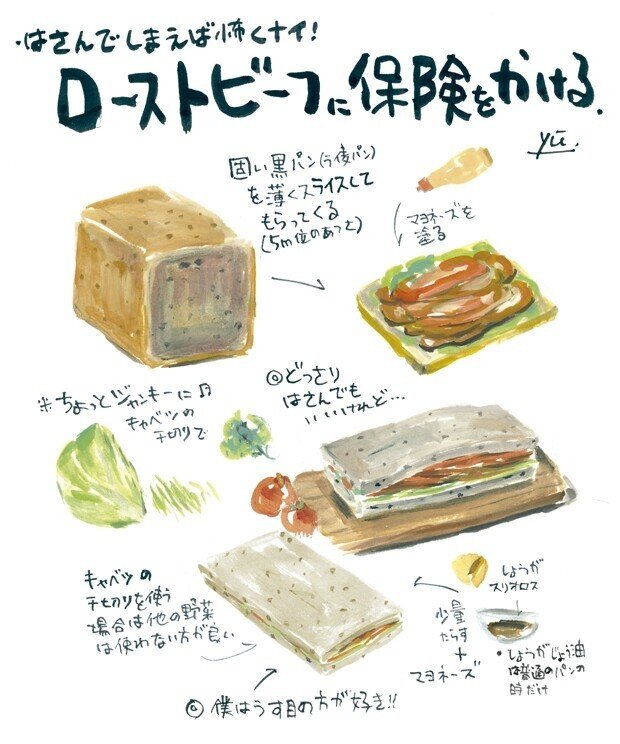 ・はさんでしまえば怖くナイ!
ローストビーフに保険をかける.
yū.
固い黒パン(ライ麦パン)
を薄くスライスして
もらってくる
(5m位のあつさ)
マヨネーズを
塗る
※ちょっとジャンキーに
キャベツの
千切りで
◎どっさり
はさんでも
いいけれど…
キャベツの
千切りを使う
場合は他の野菜
は使わない方が良い
しょうが
スリオロス
少量
たらす
+
マヨネーズ
・しょうがじょう油
は普通のパンの
時だけ
◎僕はうす目の方が好き!!